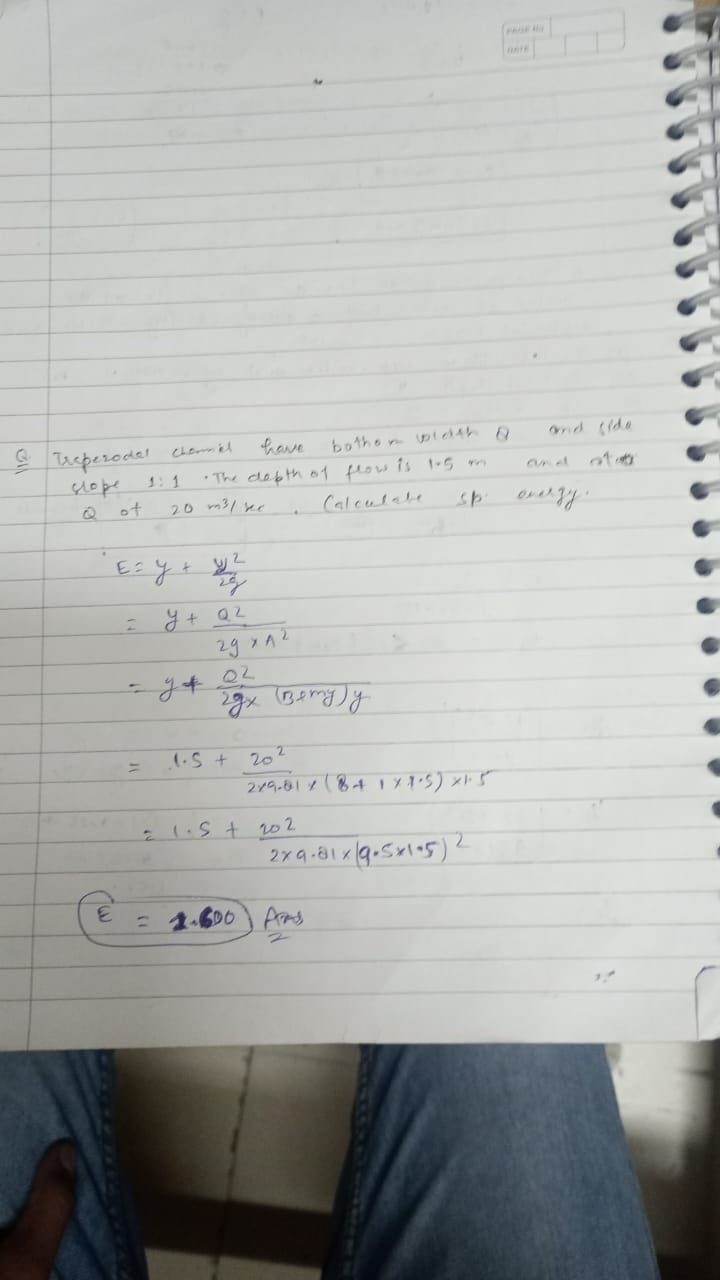 PAGE No
DATE
Q Treperodal channel have bothom width 8 and side
slope 1:1 . The depth of flow is 1.5 m and
Q of 20 m3/sec . Calculate sp. energy.
E = y + V²/2g
= y + Q2/2g x A²
= y + Q2/2gx (B+my)y
= 1.5 + 20²/2x9.81 x (8+1x1.5) x1.5
= 1.5 + 202/2x9.81x(9.5x1.5)²
E = 1.600 Ans